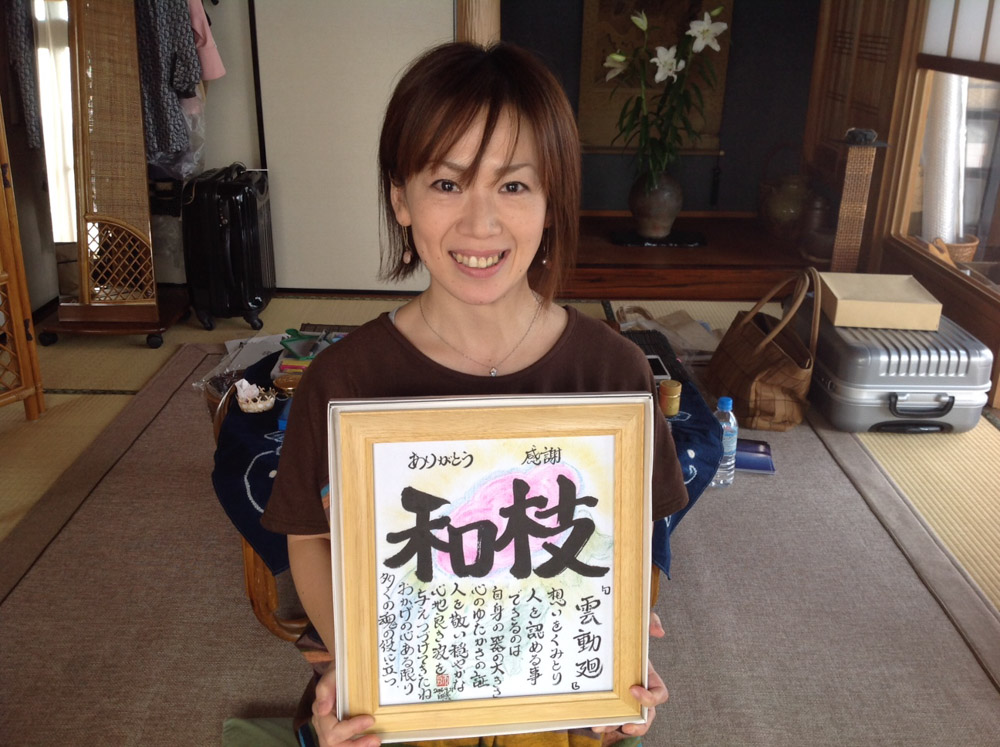 ありがとう
感謝
和枝
「雲動廻」
想いをくみとり
人を認める事
できるのは
自身の器の大きさ
心のゆたかさの証
人を敬い穏やかな
心地良き寂を
与えつづけてきたね
おかげの心ある限り
多くの魂の役に立つ